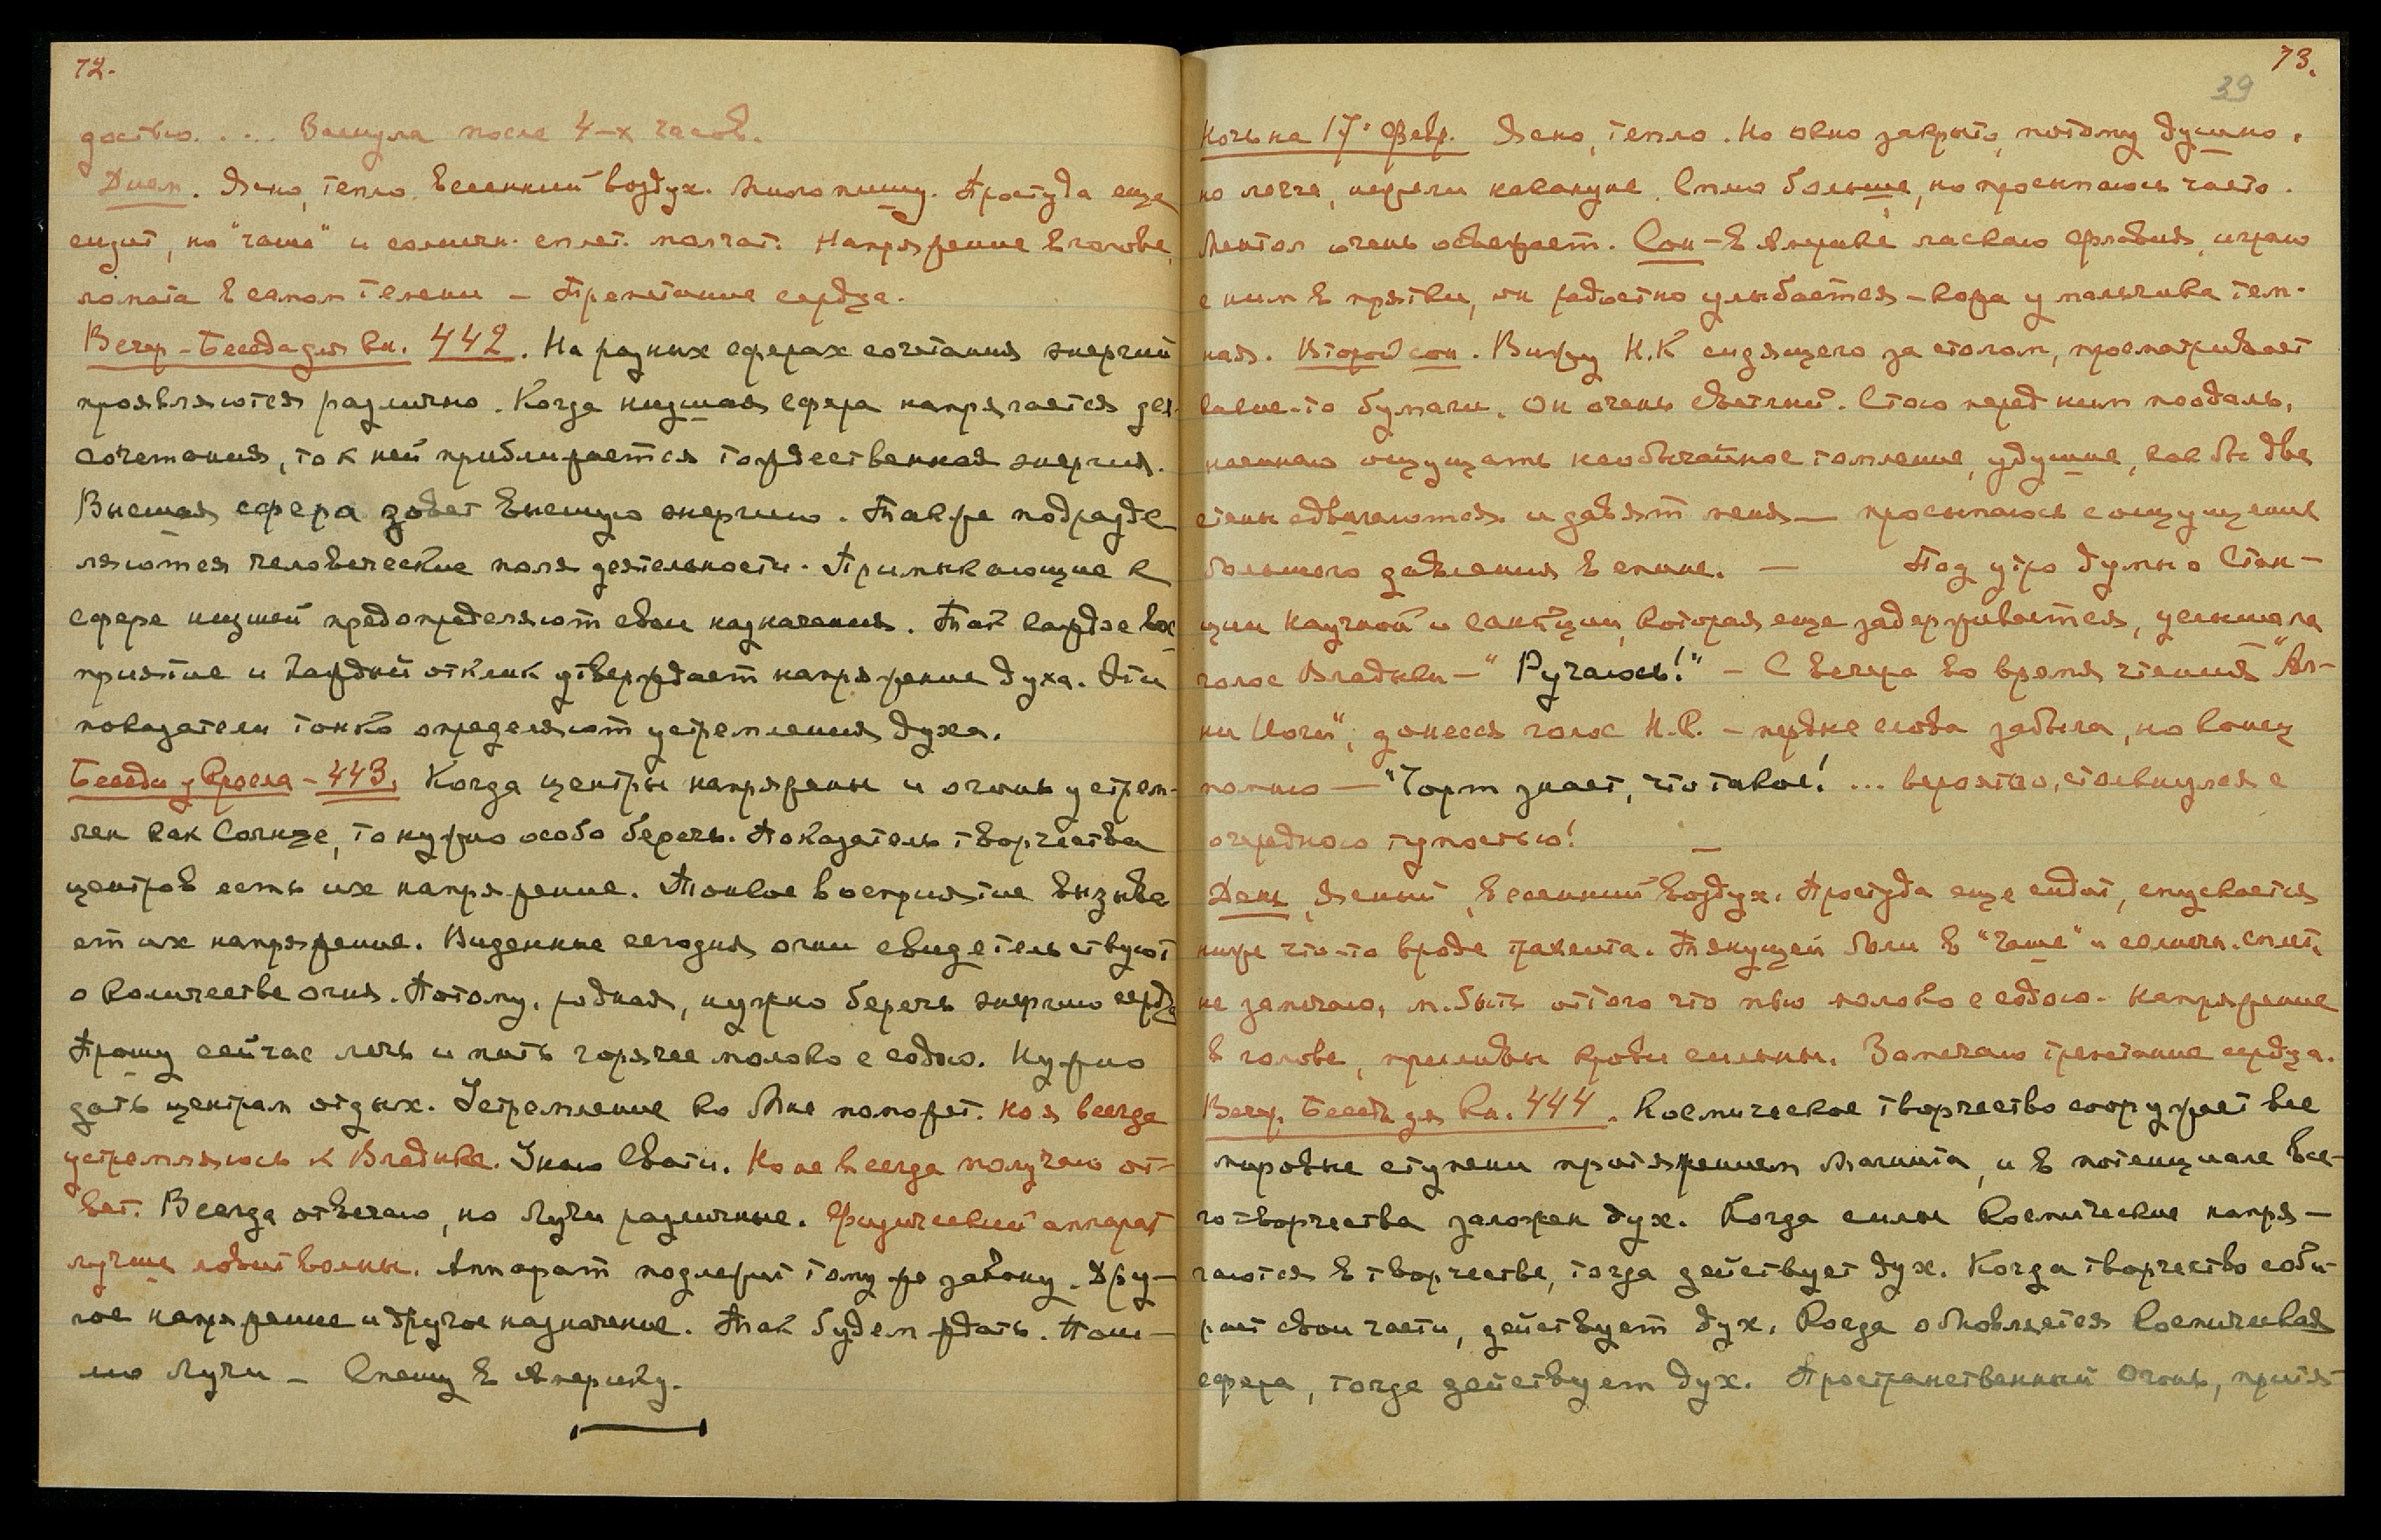 72.
достью. ... Заснула после 4-х часов.
Днем. Ясно, тепло. Весенний воздух. Много пишу. Простуда еще
сидит, но "чаша" и солнечн. сплет. молчат. Напряжение в голове,
ломота в самом темени – Трепетание сердца.
Вечер – Беседа для кн. 442. На разных сферах сочетания энергий
проявляются различно. Когда низшая сфера напрягается для
сочетания, то к ней приближается тождественная энергия.
Высшая сфера зовет высшую энергию. Также подразде
ляются человеческие поля деятельности. Примыкающие к
сфере низшей предопределяют свои назначения. Так каждое вос-
приятие и каждый отклик утверждает напряжение духа. Эти
показатели тонко определяют устремления духа.
Беседа у кресла – 443. Когда центры напряжены и огонь устрем-
лен как Солнце, то нужно особо беречь. Показатель творчества
центров есть их напряжение. Тонкое восприятие вызыва
ет их напряжение. Виденные сегодня огни свидетельствуют
о количестве огня. Потому, родная, нужно беречь энергию сердца
Прошу сейчас лечь и пить горячее молоко с содою. Нужно
дать центрам отдых. Устремление ко Мне поможет. Но я всегда
устремляюсь к Владыке. Знаю Свати. Но не всегда получаю от-
вет. Всегда отвечаю, но Лучи различные. Физический аппарат
лучше ловит волны. Аппарат подлежит тому же закону. Дру-
гое напряжение и другое назначение. Так будем ждать. Пош-
лю Лучи – Спешу в Америку.
73.
39
Ночь на 17е Февр. Ясно, тепло. Но окно закрыто, потому душно,
но легче, нежели накануне. Сплю больше, но просыпаюсь часто.
Ментол очень освежает. Сон – в Америке ласкаю Флавия, играю
с ним в прятки, он радостно улыбается – кожа у мальчика тем-
ная. Второй сон. Вижу Н.К сидящего за столом, просматривает
какие-то бумаги. Он очень светлый. Стою перед ним поодаль,
начинаю ощущать необычайное томление, удушие, как бы две
стены сдвигаются и давят меня – просыпаюсь с ощущение
большого давления в спине. – Под утро думы о Стан-
ции Научной и санкции, которая еще задерживается, услышала
голос Владыки – "Ручаюсь!" – С вечера во время чтения "Аг-
ни Йоги", донесся голос Н.К. – первые слова забыла, но конец
помню – "Чорт знает, что такое! ... вероятно, столкнулся с
очередною тупостью! –
День. Ясный, весенний воздух. Простуда еще сидит, спускается
ниже что-то вроде трахеита. Тянущей боли в "чаше" и солнечн. сплет.
не замечаю, м. быть оттого что пью молоко с содою. Напряжение
в голове, приливы крови сильны. Замечаю трепетание сердца.
Вечер. Беседа для кн. 444. Космическое творчество сооружает все
мировые ступени притяжением Магнита, и в потенциале все-
го творчества заложен дух. Когда силы Космические напря-
гаются в творчестве, тогда действует дух. Когда творчество соби-
рает свои части, действует дух. Когда обновляется Космическая
сфера, тогда действует дух. Пространственный Огонь, притя-